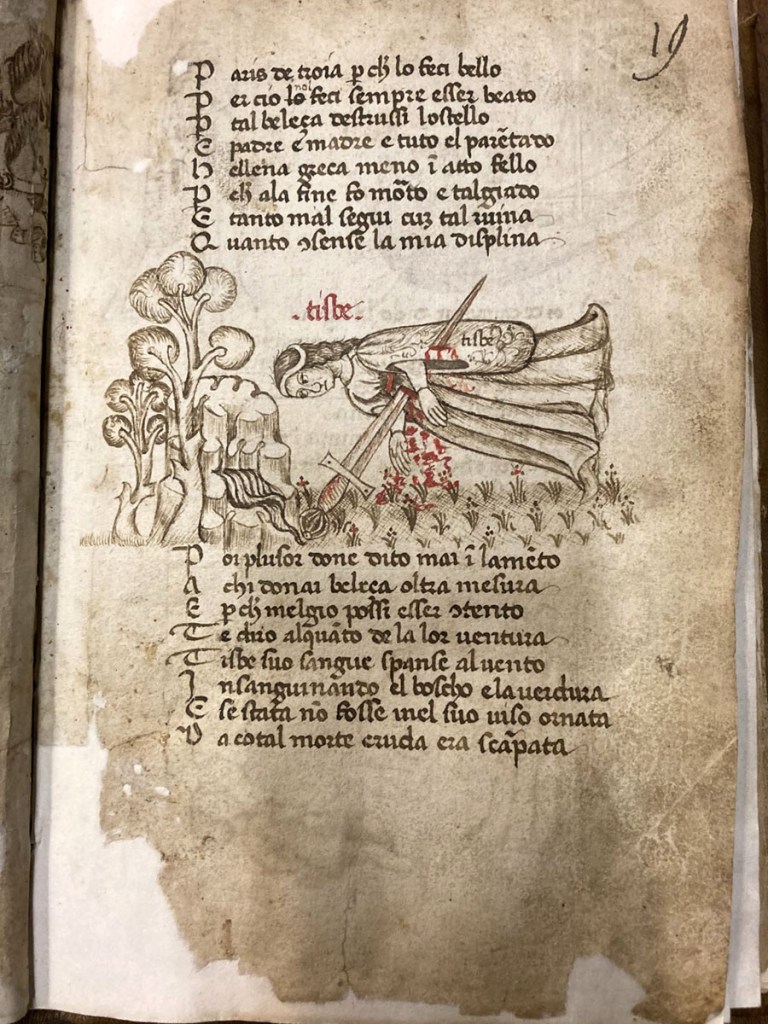 19
P aris de troia p ch lo feci bello
P er cio lo no feci sempre esser beato
P tal beleça destrussi lostello
E padre e madre e tuto el parētado
h ellena greca meno ī atto fello
P ch ala fine fo mōto e talgiado
E tanto mal segui cuz tal ruina
Q uanto ɔsense la mia displina
.tisbe.
tisbe
P or plusor done dito mai ī lamēto
A chi donai beleça oltra mesura
E p ch melgio possi esser ɔtento
T e diro alquāto de la lor ventura
T isbe suo sangue spanse al uento
I nsanguinando el boscho e la uerdura
E se stata nō fosse inel suo uiso ornata
D a cotal morte cruda era scāpata